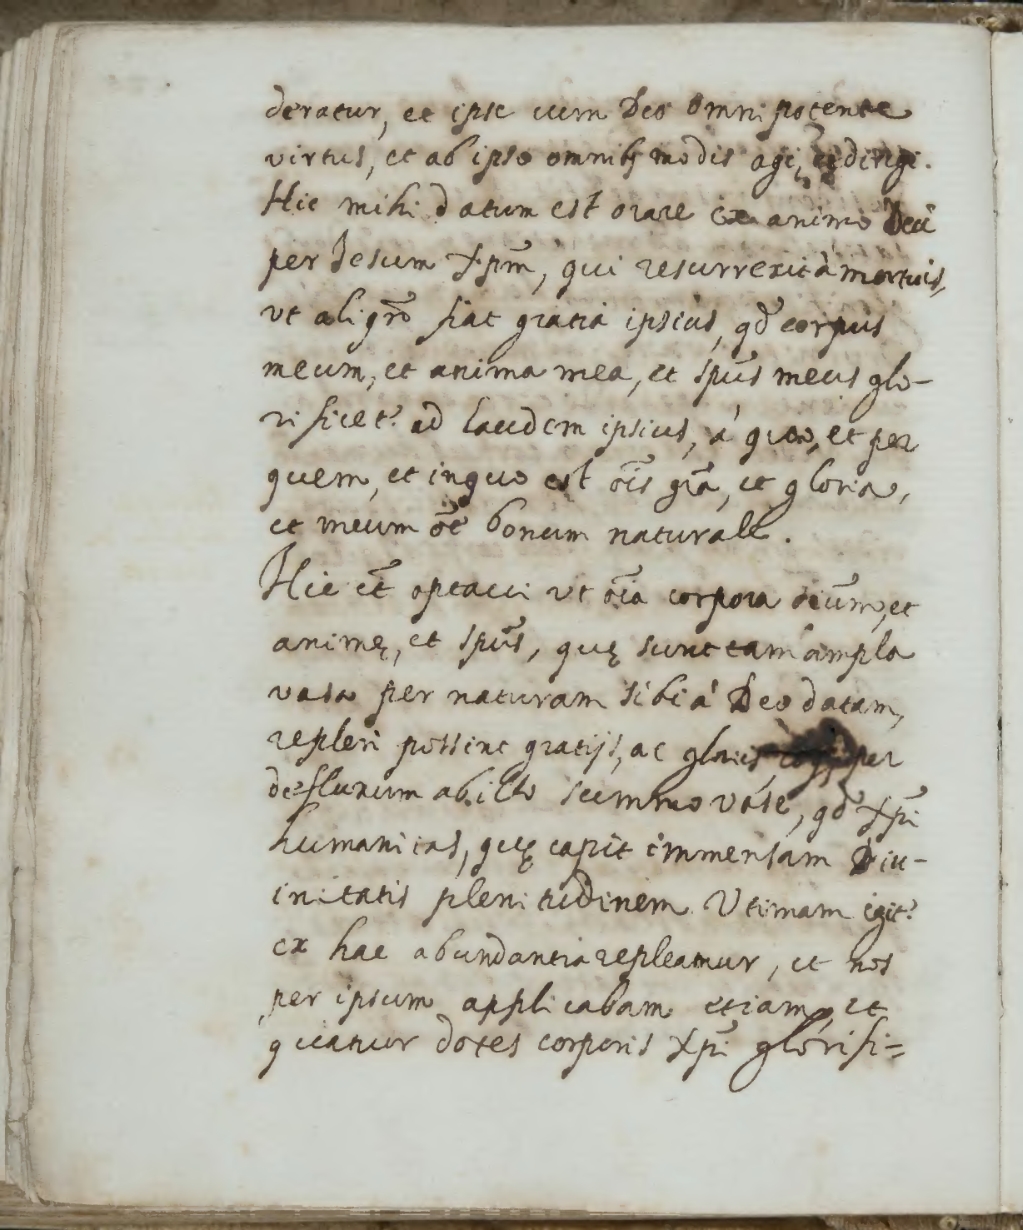 deratur, et ipse cum Deo Omnipotente
virtus, et ab ipso omnibꝫ modis agi, et dirigi.
Hic mihi datum est orare ex animo Deũ
per Jesum Xpm̃, qui resurrexit à mortuis,
vt aliqñ fiat gratia ipsius, qđ corpus
meum, et anima mea, et spũs meus glo-
rificet.ʳ ad laudem ipsius, à quo, et per
quem, et in quo est oĩs grã, et gloria,
et meum oẽ bonum naturale.
Hic et̃ optaui vt oĩa corpora oĩum, et
animę, et spũs, quę sunt tam ampla
vasa per naturam sibi à Deo datam,
repleri possint gratijs, ac glorijs per
defluxum ab illo summo vase, qđ Xpĩ
humanitas, quę capit immensam Diu-
initatis plenitudinem. Vtinam igit.ʳ
ex hac abundantia repleamur, et nos
per ipsum applicabam etiam, et
quatuor dotes corporis Xpĩ glorifi=